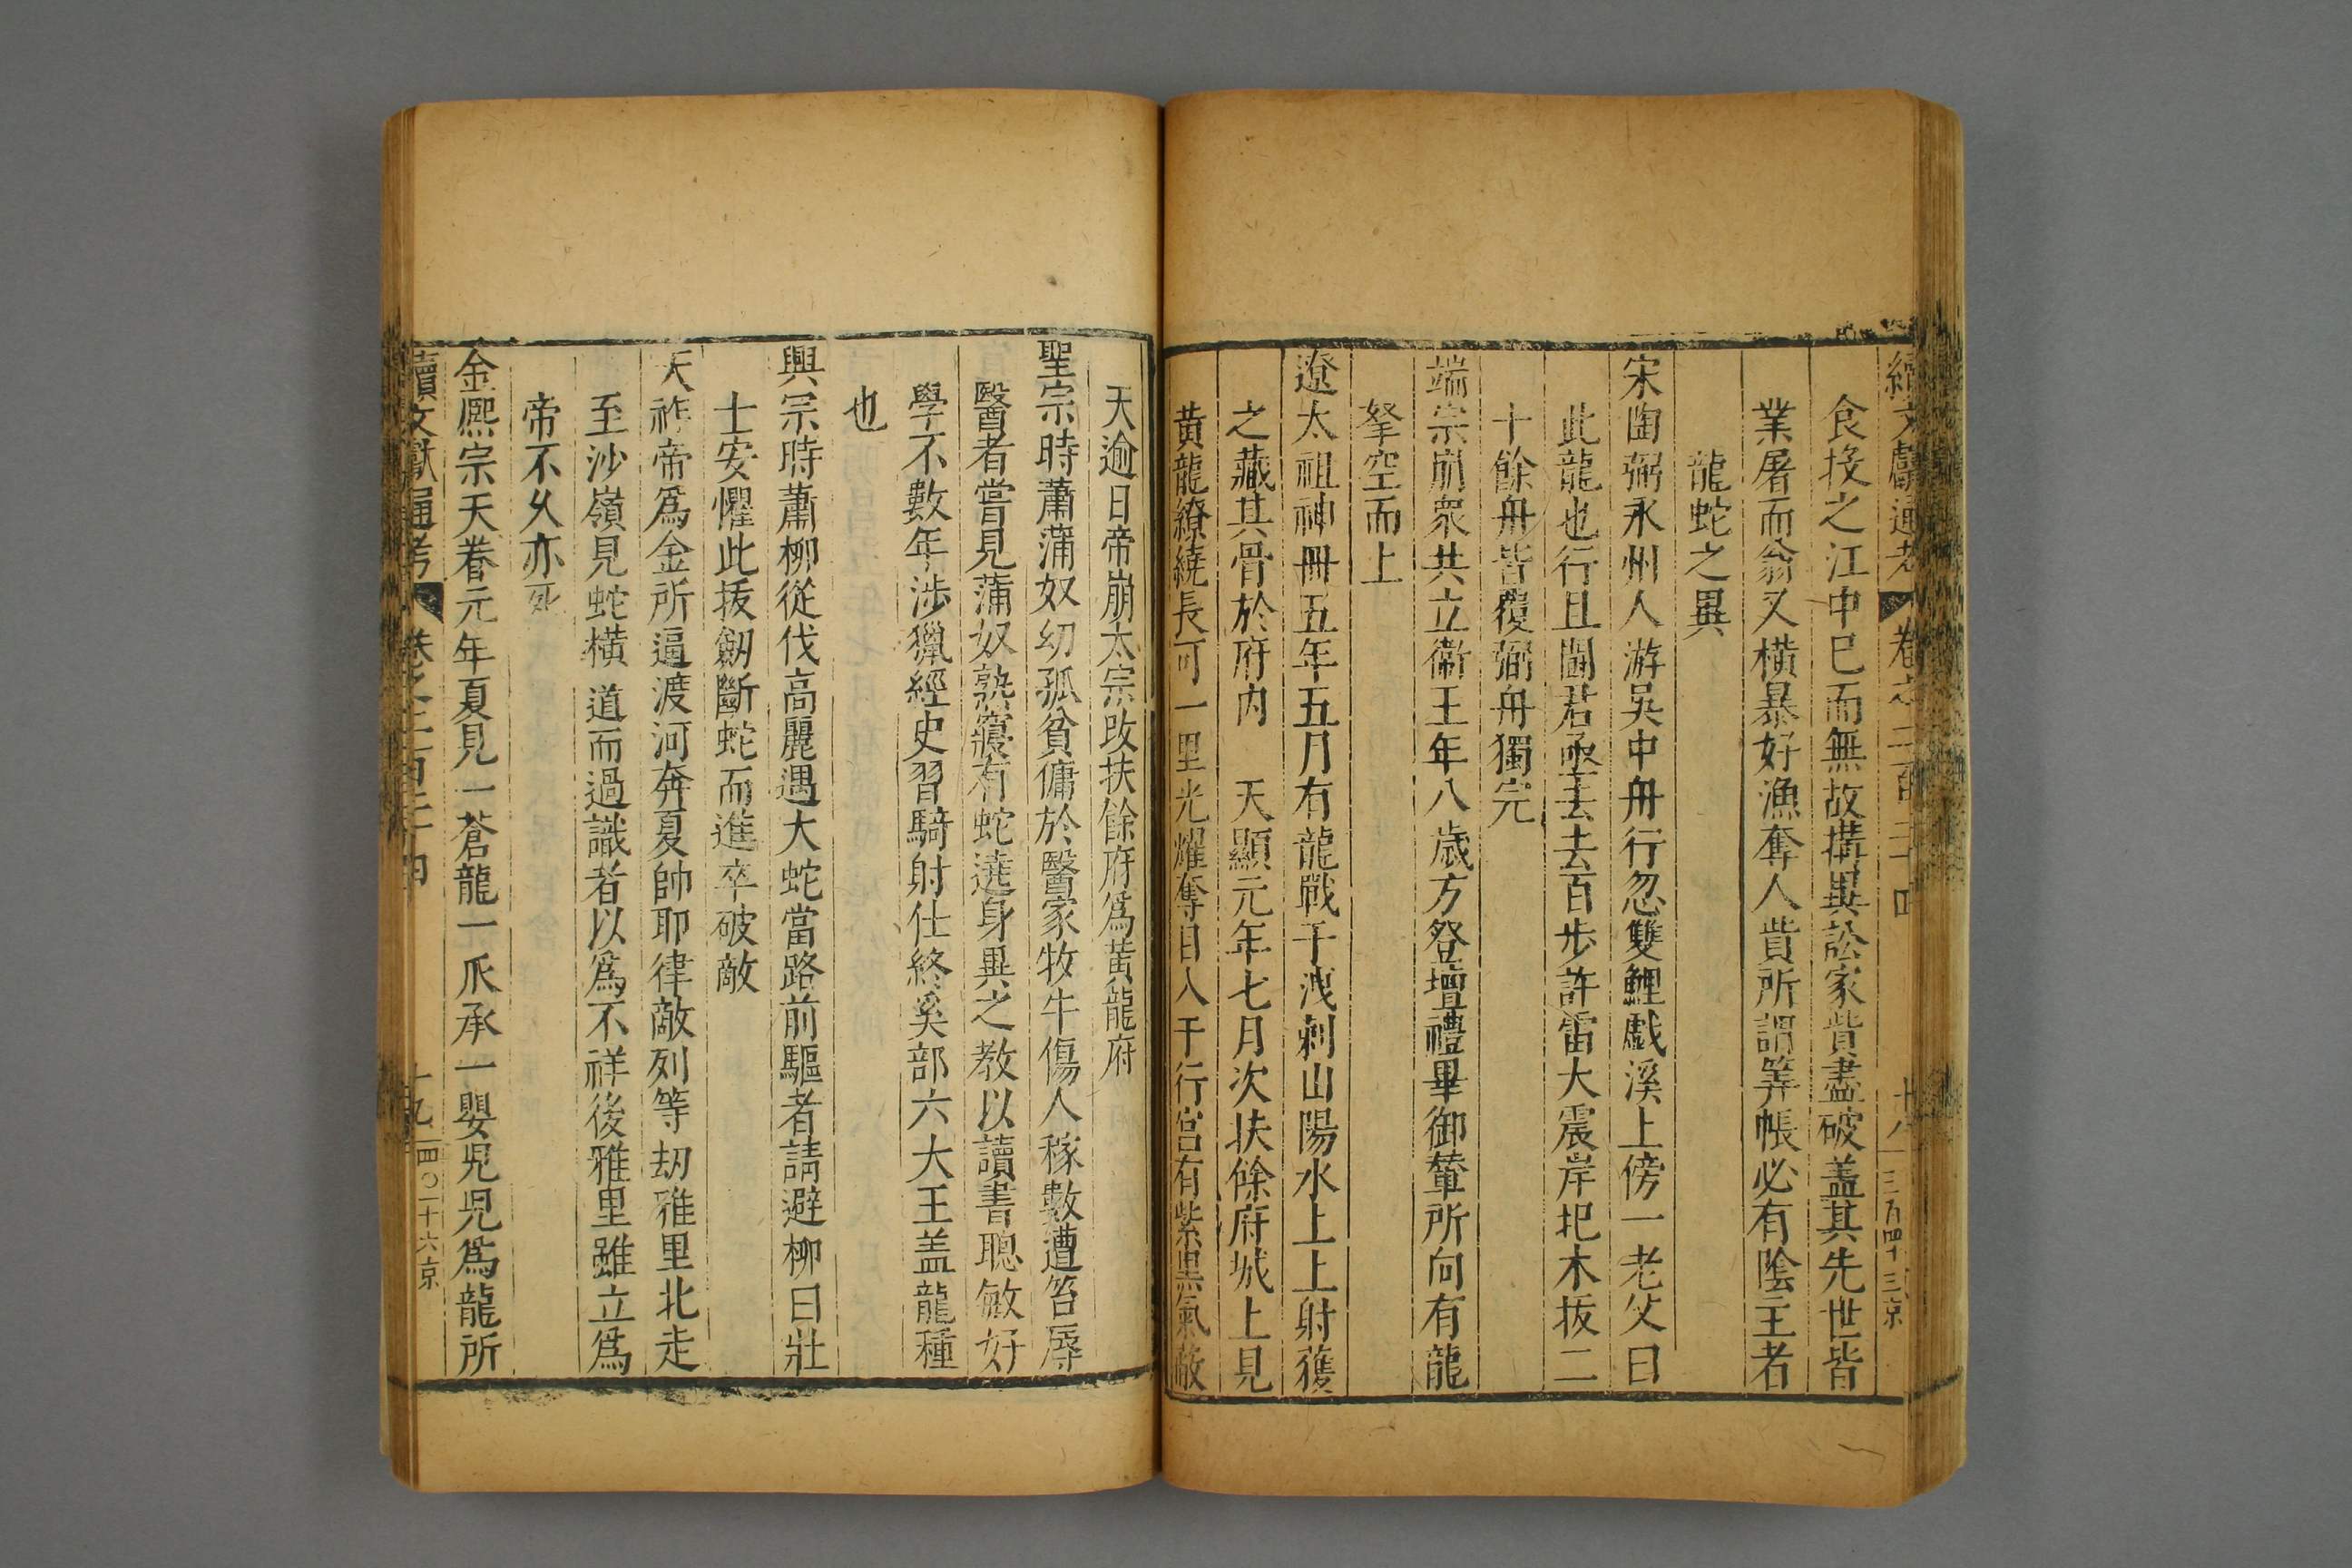 續文獻通考 卷之二百二十四 十八 三百四十三 京
食投之江中巳而無故搆異訟家貲盡破盖其先世皆
業屠而翁又横暴好漁奪人貲所謂筭帳必有隂主者
龍蛇之異
宋陶弼永州人游吳中舟行忽雙鯉戱溪上傍一老父曰
此龍也行且鬪君亟去去百步許雷大震岸圯木拔二
十餘舟皆覆弼舟獨完
端宗崩衆共立衞王年八歲方登壇禮畢御輦所向有龍
拏空而上
遼太祖神冊五年五月有龍戰于洩剌山陽水上上射獲
之藏其骨於府内 天顯元年七月次扶餘府城上見
黄龍繚繞長可一里光耀奪目入于行宫有紫黑氣蔽
天逾日帝崩太宗改扶餘府爲黄龍府
聖宗時蕭蒲奴幼孤貧傭於醫家牧牛傷人稼數遭笞辱
醫者嘗見蒲奴熟寢有蛇遶身異之教以讀書聰敏好
學不數年涉獵經史習騎射仕終奚部六大王盖龍種
也
興宗時蕭柳從伐高麗遇大蛇當路前驅者請避柳曰壯
士安懼此拔劒斷蛇而進卒破敵
天祚帝爲金所逼渡河奔夏帥耶律敵列等刼雅里北走
至沙嶺見蛇横道而過識者以爲不祥後雅里雖立爲
帝不乆亦死
金熙宗天眷元年夏見一蒼龍一爪承一嬰児児爲龍所
續文獻通考 卷之二百二十四 十九 四〇二十六 京